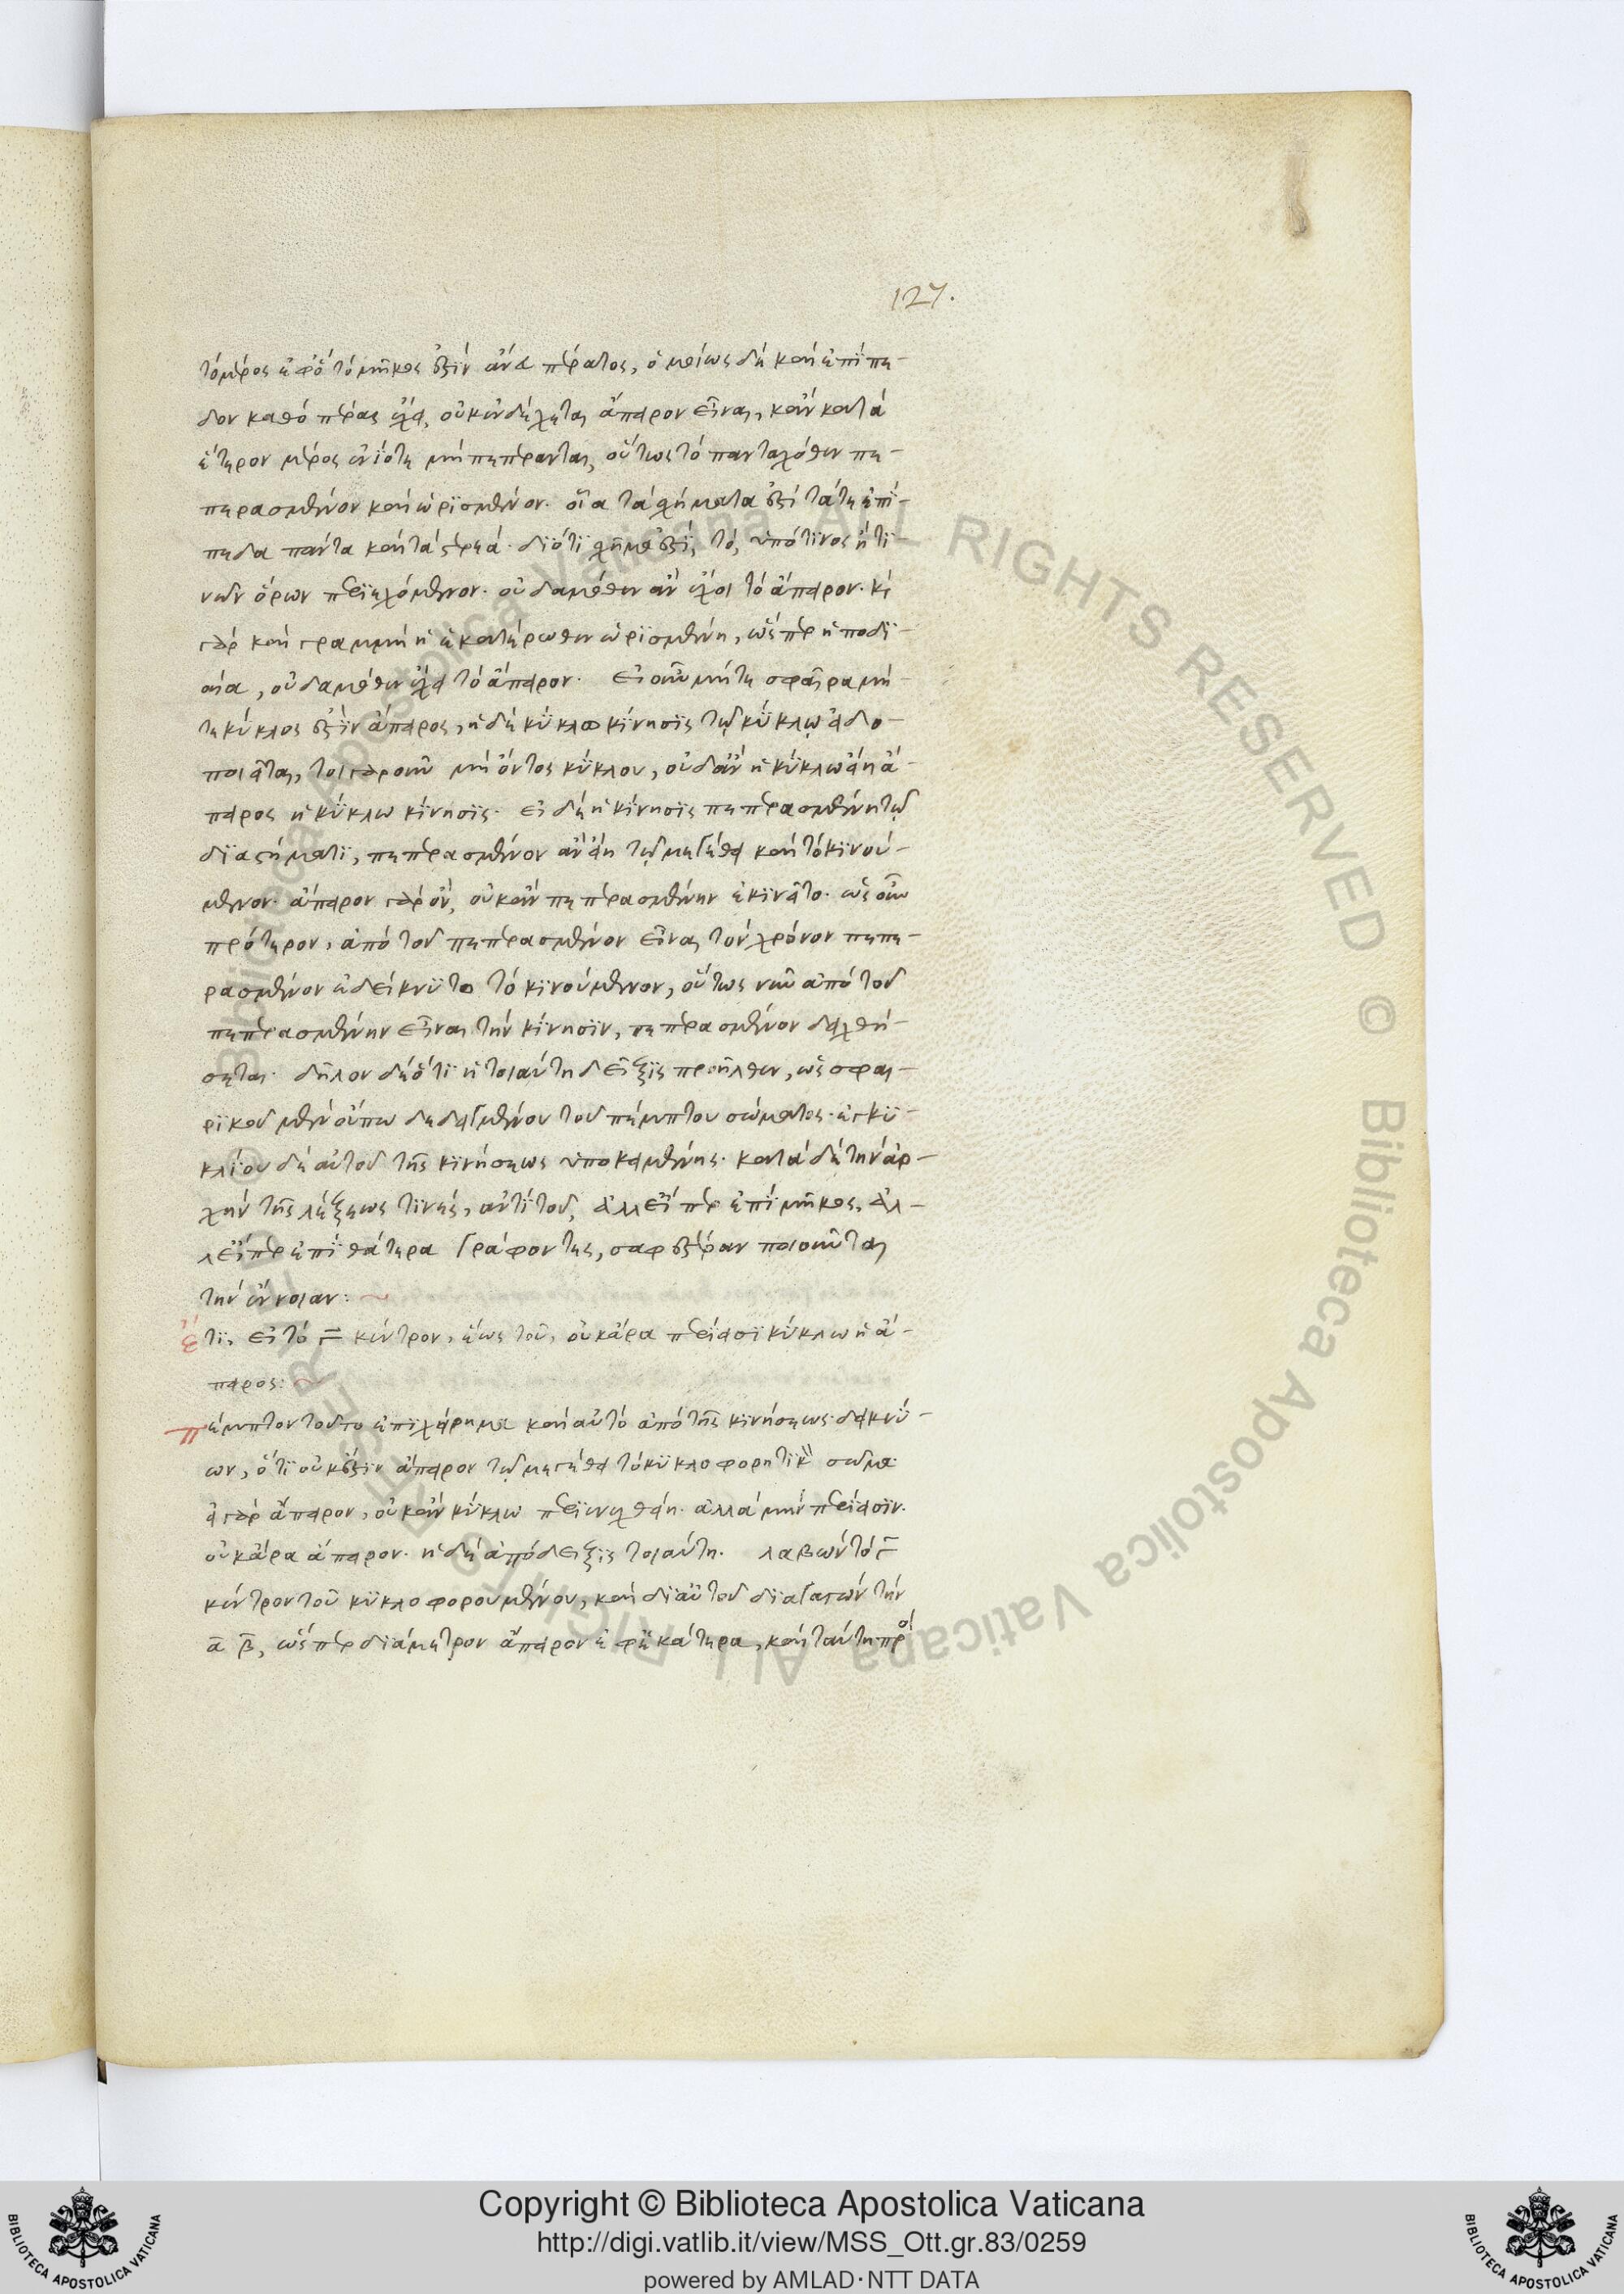 127.
τὸ μέρος ἐφ' ὃ τὸ μῆκος ἐστὶν ἄνευ πέρατος, ὁμοίως δὲ καὶ ἐπίπε-
δον καθὸ πέρας ἔχει, οὐκ ἐνδέχεται ἄπειρον εἶναι, κἂν κατὰ
ἕτερον μέρος ἐνίοτε μὴ πεπέρανται, οὕτως τὸ πανταχόθεν πε-
περασμένον καὶ ὡρισμένον. οἷα τὰ σχήματα ἐστὶ τά τε ἐπί-
πεδα πάντα καὶ τὰ στερεά. διότι σχῆμα ἐστὶ, τὸ, ὑπό τινος ἤ τι-
νων ὅρων περιεχόμενον. οὐδαμόθεν ἂν ἔχοι τὸ ἄπειρον. εἰ
γὰρ καὶ γραμμὴ ἡ ἑκατέρωθεν ὡρισμένη, ὥσπερ ἡ ποδι-
αία, οὐδαμόθεν ἔχει τὸ ἄπειρον. εἰ οὖν μήτε σφαῖρα μή-
τε κύκλος ἐστὶν ἄπειρος, ἡ δὲ κύκλω κίνησις τῷ κύκλῳ εἰδο-
ποιεῖται, τοιγαροῦν μὴ ὄντος κύκλου, οὐδ' ἂν ἡ κύκλω εἴη ἄ-
πειρος ἡ κύκλω κίνησις. εἰ δὲ ἡ κίνησις πεπερασμένη τῷ
διαστήματι, πεπερασμένον ἂν εἴη τῷ μεγέθει καὶ τὸ κινού-
μενον. ἄπειρον γὰρ ὂν, οὐκ ἂν πεπερασμένην ἐκινεῖτο. ὡς οὖν
πρότερον, ἀπὸ τοῦ πεπερασμένον εἶναι τὸν χρόνον πεπε-
ρασμένον ἐδείκνυτο τὸ κινούμενον, οὕτως νῦν ἀπὸ τοῦ
πεπερασμένην εἶναι τὴν κίνησιν, πεπερασμένον δειχθή-
σεται. δῆλον δὲ ὅτι ἡ τοιαύτη δεῖξις προῆλθεν, ὡς σφαι-
ρικοῦ μὲν οὔπω δεδειγμένου τοῦ πέμπτου σώματος. ἐγκυ-
κλίου δὲ αὐτοῦ τῆς κινήσεως ὑποκειμένης. κατὰ δὲ τὴν ἀρ-
χὴν τῆς λέξεως τινὲς, ἀντὶ τοῦ, ἀλλ' εἴπερ ἐπὶ μῆκος, ἀλ-
λ' εἴπερ ἐπὶ θάτερα γράφοντες, σαφεστέραν ποιοῦνται
τὴν ἔννοιαν:
ἔτι, εἰ τὸ Γ κέντρον, ἕως τοῦ, οὐκ ἄρα περίεισι κύκλω ἡ ἄ-
πειρος:
πέμπτον τοῦτο ἐπιχείρημα καὶ αὐτὸ ἀπὸ τῆς κινήσεως δεικνύ-
ων, ὅτι οὐκ ἔστιν ἄπειρον τῷ μεγέθει τὸ κυκλοφορητικὸν σῶμα.
εἰ γὰρ ἄπειρον, οὐκ ἂν κύκλω περιενεχθείη. ἀλλὰ μὴν περίεισιν.
οὐκ ἄρα ἄπειρον. ἡ δὲ ἀπόδειξις τοιαύτη. λαβὼν τὸ Γ
κέντρον τοῦ κυκλοφορουμένου, καὶ δι' αὐτοῦ διαγαγὼν τὴν
α β, ὥσπερ διάμετρον ἄπειρον ἐφ' ἑκάτερα, καὶ ταύτη πρὸς
Copyright © Biblioteca Apostolica Vaticana
http://digi.vatlib.it/view/MSS_Ott.gr.83/0259
powered by AMLAD·NTT DATA